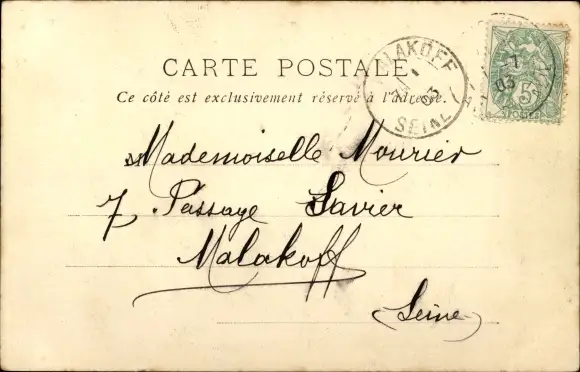 CARTE POSTALE.
Ce côté est exclusivement réservé à l'adresse.
MALAKOFF
03
SEINE
7
03
5c
POSTES
Mademoiselle Mourier
7. Passage Savier
Malakoff
(Seine)